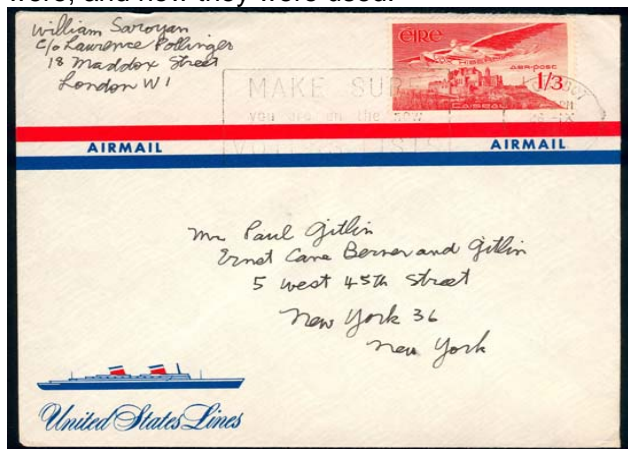 were, and how they were used.
William Saroyan
c/o Laurence Pollinger
18 Maddox Street
London W1
éire
aer-post
1/3
CAISEAL
MAKE SURE
you are on the new
VOTERS LISTS
AIRMAIL
AIRMAIL
Mr Paul Gitlin
Ernst Cane Berner and Gitlin
5 west 45th Street
New York 36
New York
United States Lines